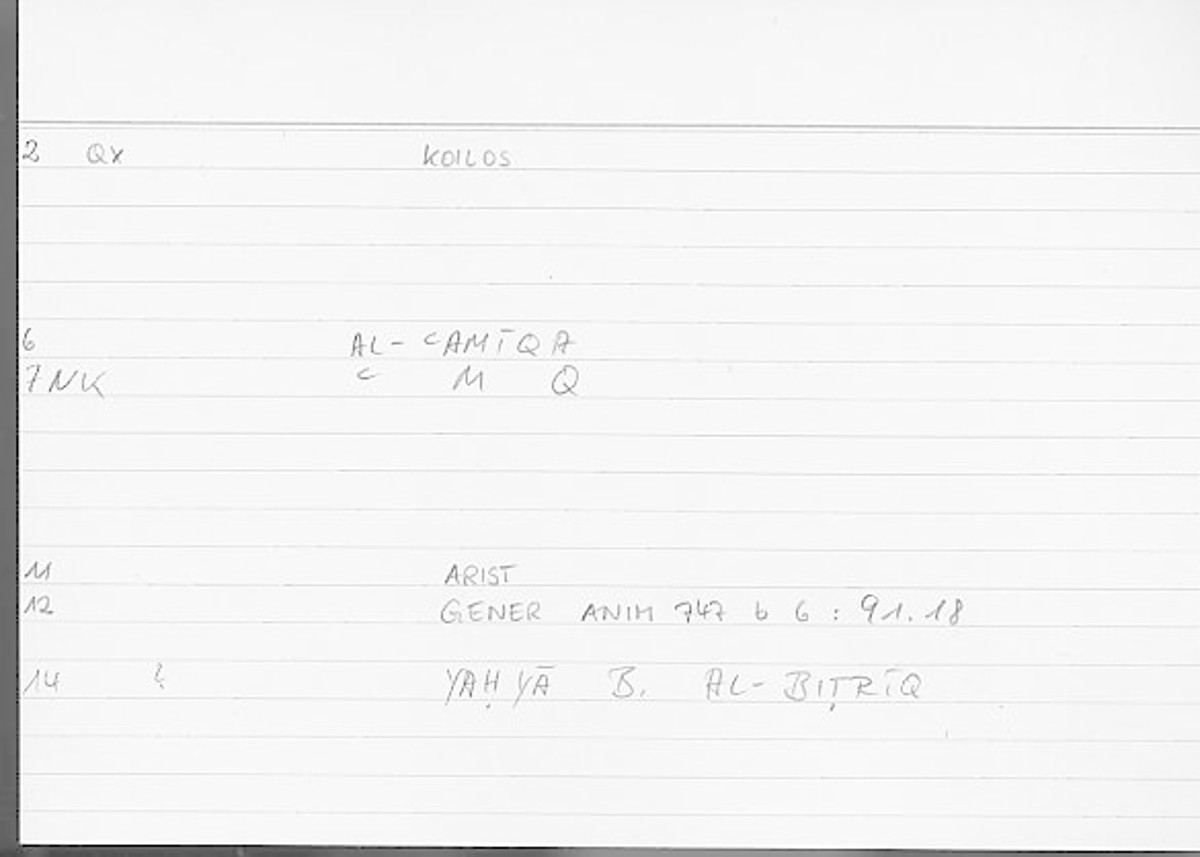 2 QX KOILOS
6 AL- ʿAMĪQA
7NK ʿ M Q
11 ARIST
12 GENER ANIM 747 b 6 : 91.18
14 ? YAḤYĀ B. AL-BIṬRĪQ